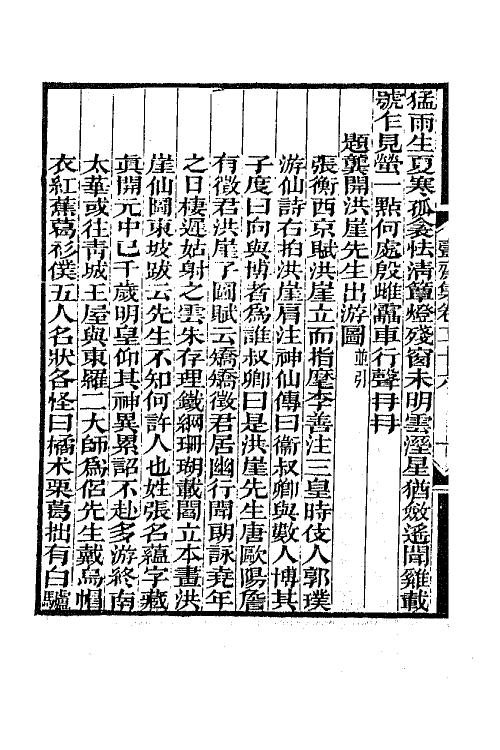 猛雨生夏寒孤衾怯清簟燈殘窗未明雲溼星猶斂遙聞雞載
號乍見螢一點何處殷雌霝車行聲冄冄
題龔開洪崖先生出游圖並引
張衡西京賦洪崖立而指麾李善注三皇時伎人郭璞
游仙詩右拍洪崖肩注神仙傳曰衞叔卿與數人博其
子度曰向與博者為誰叔卿曰是洪崖先生唐歐陽詹
有徵君洪崖子圖賦云矯矯徵君居幽行聞朝詠堯年
之日棲遲姑射之雲朱存理鐵網珊瑚載閻立本畫洪
崖仙圖東坡跋云先生不知何許人也姓張名蘊字藏
眞開元中已千歲明皇仰其神異累詔不赴多游終南
太華或往靑城王屋與東羅二大師為侶先生戴烏帽
衣紅蕉葛衫僕五人名狀各怪曰橘木栗葛拙有白驢